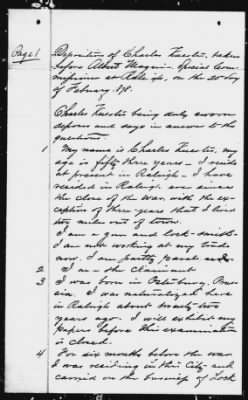 Page 1
Deposition of Charles Kuester, taken
before Albert Magnin Special Com-
missioner at Raleigh, on the 20 day
of February 187.
Charles Kuester being duly sworn
deposes and says in answer to the
questions.
1 My name is Charles Kuester, my
age is fifty three years - I reside
at present in Raleigh - I have
resided in Raleigh ever since
the close of the war with the ex-
ception of three years that I lived
two miles out of town.
I am a gun and lock-smith -
I am not working at my trade
now. I am partly
2 I am the claimant
3 I was born in Petersburg,
I was naturalized here
in Raleigh about twenty two
years ago. I will exhibit my
papers before this examination
is closed.
4 For six months before the war
I was residing in this City and
carried on the business of Lock